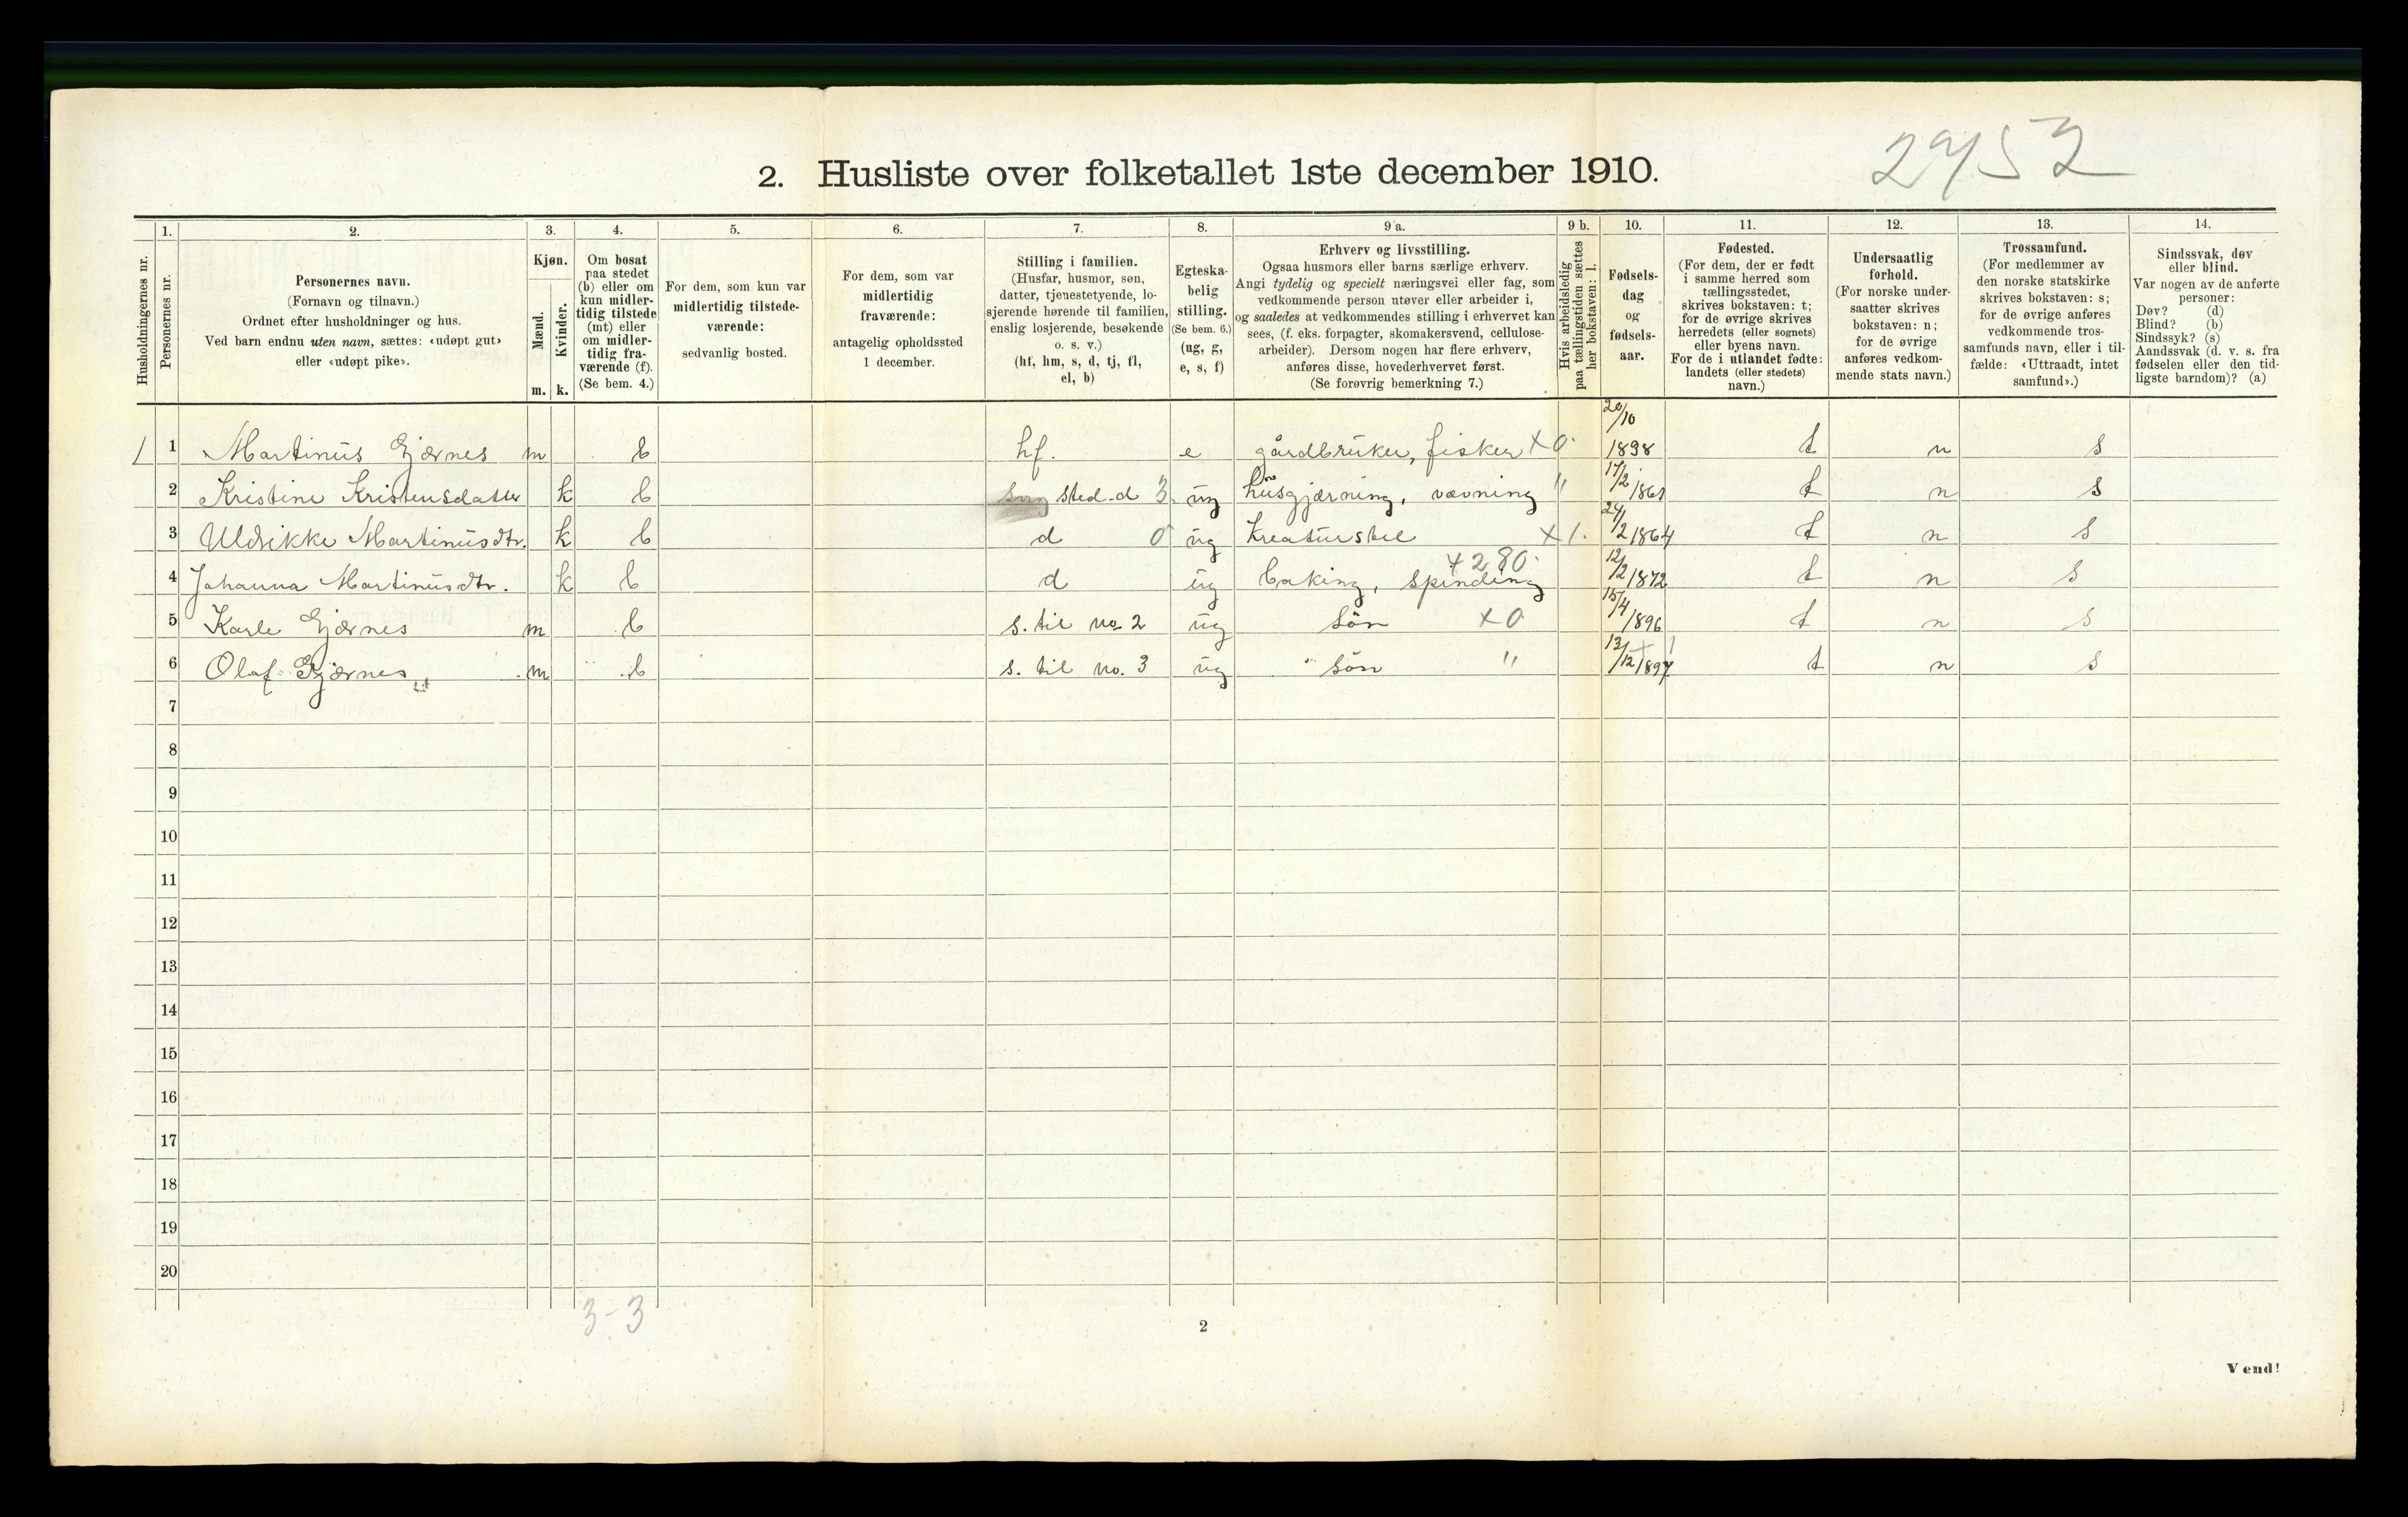 29/52
2. Husliste over folketallet 1ste december 1910.
Husholdningernes nr.
1.
Personernes nr.
2.
Personernes navn.
(Fornavn og tilnavn.)
Ordnet efter husholdninger og hus.
Ved barn endnu uten navn, sættes: «udøpt gut»
eller «udøpt pike».
3.
Kjøn.
Mænd.
m.
Kvinder.
k.
4.
Om bosat
paa stedet
(b) eller om
kun midler-
tidig tilstede
(mt) eller
om midler-
tidig fra-
værende (f).
(Se bem. 4.)
5.
For dem, som kun var
midlertidig tilstede-
værende:
sedvanlig bosted.
6.
For dem, som var
midlertidig
fraværende:
antagelig opholdssted
1 december.
7.
Stilling i familien.
(Husfar, husmor, søn,
datter, tjenestetyende, lo-
sjerende hørende til familien,
enslig losjerende, besøkende
o. s. v.)
(hf, hm, s, d, tj, fl,
el, b)
8.
Egteska-
belig
stilling.
(Se bem. 6.)
(ug, g,
e, s, f)
9 a.
Erhverv og livsstilling.
Ogsaa husmors eller barns særlige erhverv.
Angi tydelig og specielt næringsvei eller fag, som
vedkommende person utøver eller arbeider i,
og saaledes at vedkommendes stilling i erhvervet kan
sees, (f. eks. forpagter, skomakersvend, cellulose-
arbeider). Dersom nogen har flere erhverv,
anføres disse, hovederhvervet først.
(Se forøvrig bemerkning 7.)
9 b.
Hvis arbeidsledig
paa tællingstiden sættes
her bokstaven: l.
10.
Fødsels-
dag
og
fødsels-
aar.
11.
Fødested.
(For dem, der er født
i samme herred som
tællingsstedet,
skrives bokstaven: t;
for de øvrige skrives
herredets (eller sognets)
eller byens navn.
For de i utlandet fødte:
landets (eller stedets)
navn.)
12.
Undersaatlig
forhold.
(For norske under-
saatter skrives
bokstaven: n;
for de øvrige
anføres vedkom-
mende stats navn.)
13.
Trossamfund.
(For medlemmer av
den norske statskirke
skrives bokstaven: s;
for de øvrige anføres
vedkommende tros-
samfunds navn, eller i til-
fælde: «Uttraadt, intet
samfund».)
14.
Sindssvak, døv
eller blind.
Var nogen av de anførte
personer:
Døv? (d)
Blind? (b)
Sindssyk? (s)
Aandssvak (d. v. s. fra
fødselen eller den tid-
ligste barndom)? (a)
1 1 Martinus Gjærnes m b hf. e gårdbruker, fisker x0 20/10 1838 t n s
2 Kristine Kristensdatter k b sted-d 3 ug husgjærning, vævning " 17/2 1861 t n s
3 Uldrikke Martinusdtr. k b d 0 ug Kreaturstel x1. 24/2 1864 t n s
4 Johanna Martinusdtr. k b d ug baking, spinding x280 12/2 1872 t n s
5 Karle Gjærnes m b s. til no 2 ug søn x0 15/4 1896 t n s
6 Olaf Gjærnes m b s. til no. 3 ug søn " 13/12 1897 t n s
7
8
9
10
11
12
13
14
15
16
17
18
19
20
3-3
2
Vend!